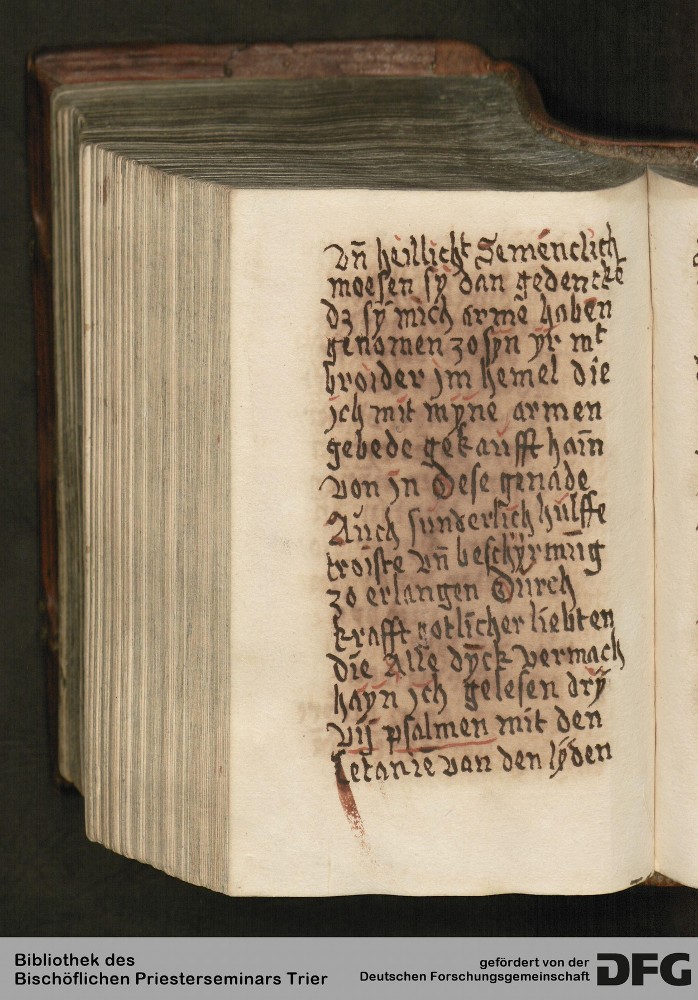 vn̄ heillicht Semenclich
moesen sy dan gedencke
dz sy mich arme haben
genomen zo syn yr mt
broider jm hemel die
jch mit myne armen
gebede gekaufft hain̄
von jn Dese genade
Auch sunderlich hulffe
troiste vn̄ beschyrmūg
zo erlangen Durch
krafft gotlicher liebten
die Alle dȳck vermach
hayn jch gelesen dry
vij psalmen mit den
letanie van den lyden
Bibliothek des
Bischöflichen Priesterseminars Trier
gefördert von der
Deutschen Forschungsgemeinschaft
DFG